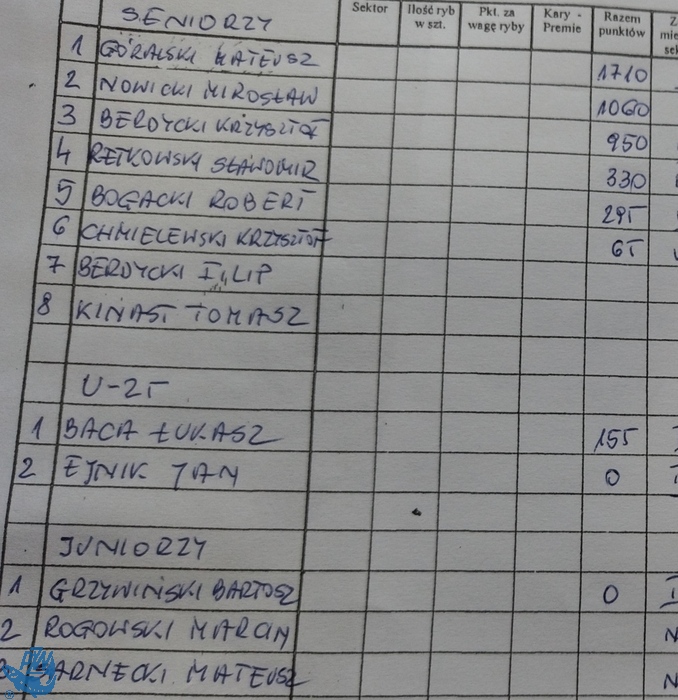 Sektor Ilość ryb w szt. Pkt. za wagę ryby Kary - Premie Razem punktów
SENIORZY
1 GÓRALSKI MATEUSZ 1710
2 NOWICKI MIROSŁAW 1060
3 BERDYCKI KRZYSZTOF 950
4 RETKOWSKI SŁAWOMIR 330
5 BOGACKI ROBERT 295
6 CHMIELEWSKI KRZYSZTOF 65
7 BERDYCKI FILIP
8 KINAST TOMASZ
U-25
1 BACA ŁUKASZ 155
2 EJNIK JAN 0
JUNIORZY
1 GRZYWIŃSKI BARTOSZ 0
2 ROGOWSKI MARCIN N
MATEUSZ N